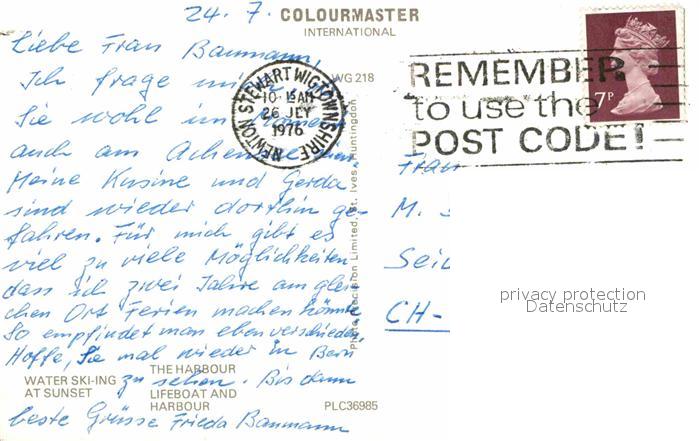 24. 7. COLOURMASTER
INTERNATIONAL
Liebe Frau Baumann,
Ich frage
WG 218
Sie wohl im
auch am
Meine Kusine und Gerda
sind wieder dorthin ge-
fahren. Für mich gibt es
viel zu viele Möglichkeiten
dass ich zwei Jahre am glei-
chen Ort Ferien machen könnte
So empfindet man eben verschieden
Hoffe, Sie mal wieder in Bern
zu sehen. Bis dann
beste Grüsse Frieda Baumann
WATER SKI-ING
AT SUNSET
THE HARBOUR
LIFEBOAT AND
HARBOUR
PLC36985
Photo Precision Limited, St. Ives, Huntingdon
NEWTON STEWART WIGTOWNSHIRE
10-15AM
26 JLY
1976
REMEMBER
to use the
POST CODE!
7P
Frau
M.
CH-
privacy protection
Datenschutz